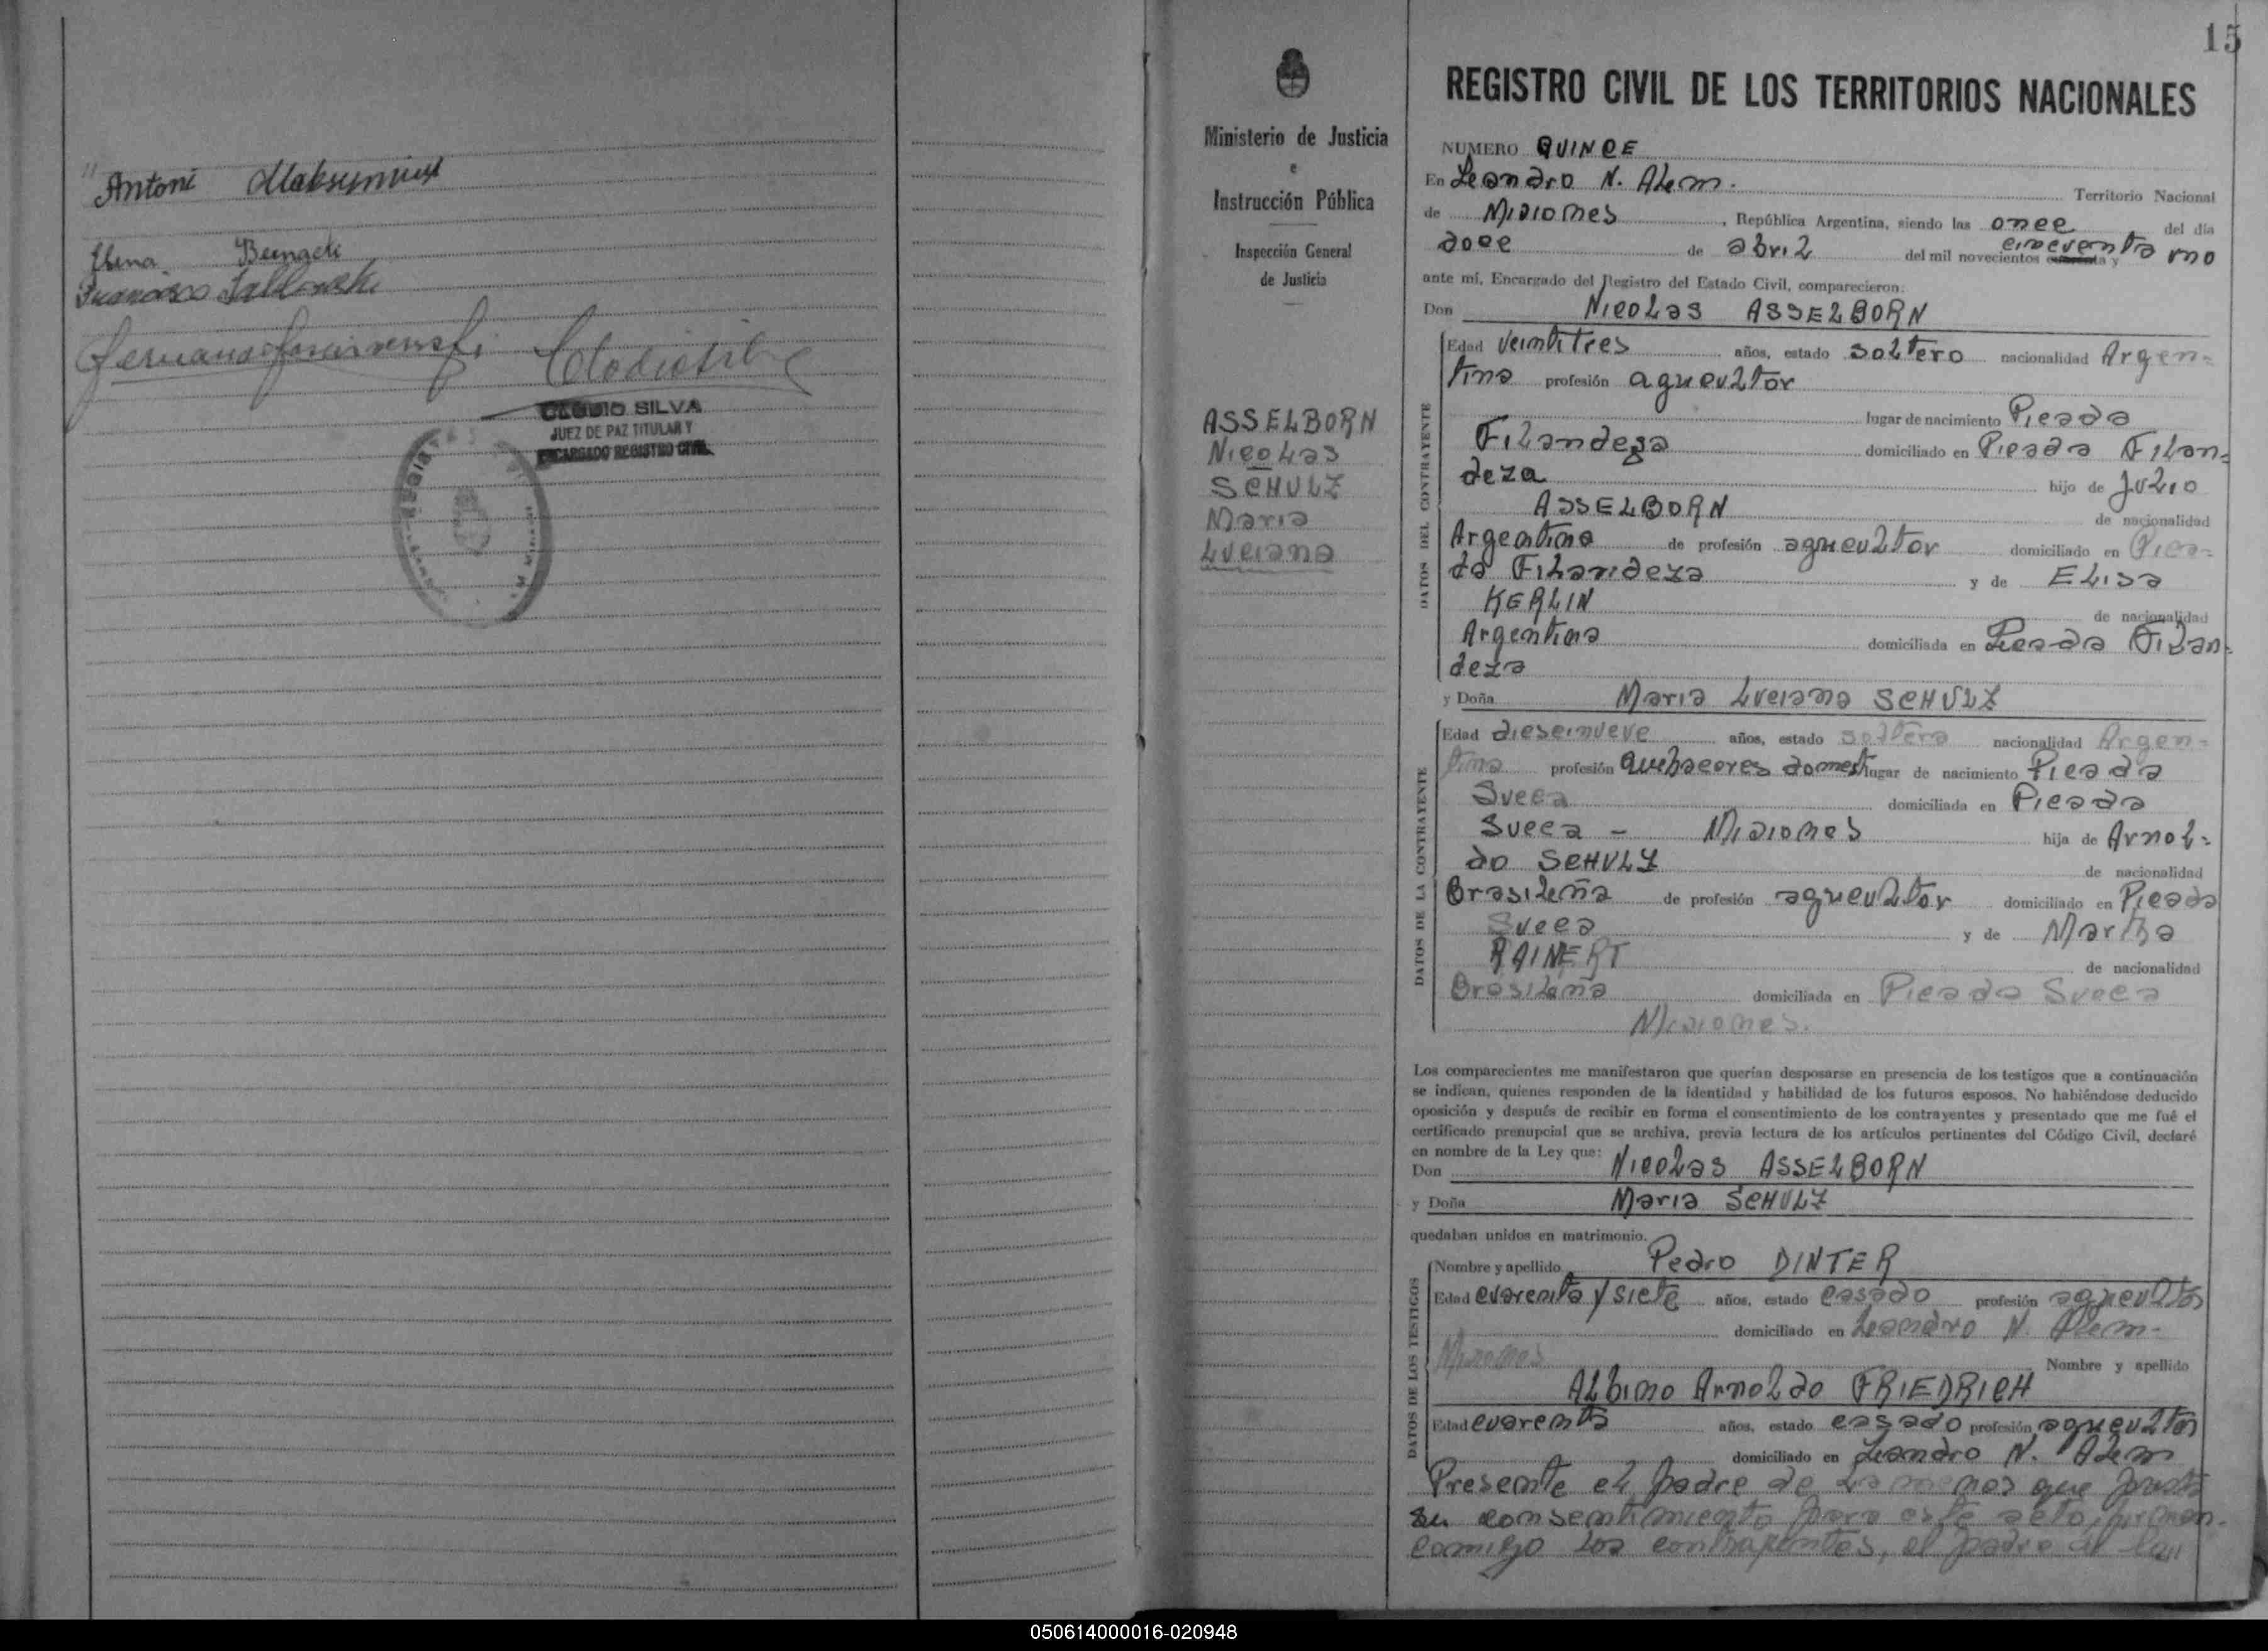 Antoni
Elena
Francisco
CLAUDIO SILVA
JUEZ DE PAZ TITULAR Y
ENCARGADO REGISTRO CIVIL
15
Ministerio de Justicia
e
Instrucción Pública
Inspección General
de Justicia
ASSELBORN
Nicolas
SCHULZ
Maria
Luciana
REGISTRO CIVIL DE LOS TERRITORIOS NACIONALES
NUMERO QUINCE
En Leandro N. Alem. Territorio Nacional
de Misiones, República Argentina, siendo las once del día
doce de abril del mil novecientos cuarenta y cincuenta uno
ante mí, Encargado del Registro del Estado Civil, comparecieron:
Don Nicolas ASSELBORN
DATOS DEL CONTRAYENTE
Edad veintitres años, estado soltero nacionalidad Argen=
tina profesión agricultor
lugar de nacimiento Picada
Filandeza domiciliado en Picada Filan=
deza hijo de Julio
ASSELBORN de nacionalidad
Argentina de profesión agricultor domiciliado en Pica=
da Filandeza y de Elisa
KERLIN de nacionalidad
Argentina domiciliada en Picada Filan=
deza
y Doña Maria Luciana SCHULZ
DATOS DE LA CONTRAYENTE
Edad diescinueve años, estado soltera nacionalidad Argen=
tina profesión quehaceres domest lugar de nacimiento Picada
Sueca domiciliada en Picada
Sueca - Misiones hija de Arnol=
do SCHULZ de nacionalidad
Brasileña de profesión agricultor domiciliado en Picada
Sueca y de Martha
RAINERT de nacionalidad
Brasileña domiciliada en Picada Sueca
Misiones.
Los comparecientes me manifestaron que querían desposarse en presencia de los testigos que a continuación
se indican, quienes responden de la identidad y habilidad de los futuros esposos. No habiéndose deducido
oposición y después de recibir en forma el consentimiento de los contrayentes y presentado que me fué el
certificado prenupcial que se archiva, previa lectura de los artículos pertinentes del Código Civil, declaré
en nombre de la Ley que:
Don Nicolas ASSELBORN
y Doña Maria SCHULZ
quedaban unidos en matrimonio.
DATOS DE LOS TESTIGOS
Nombre y apellido Pedro DINTER
Edad cuarenta y siete años, estado casado profesión agricultor
domiciliado en Leandro N. Alem-
Misiones Nombre y apellido
Albino Arnoldo FRIEDRICH
Edad cuarenta años, estado casado profesión agricultor
domiciliado en Leandro N. Alem
Presente el padre de la menor que presta
su consentimiento para este acto, firman
conmigo los contrayentes, el padre de la
050614000016-020948